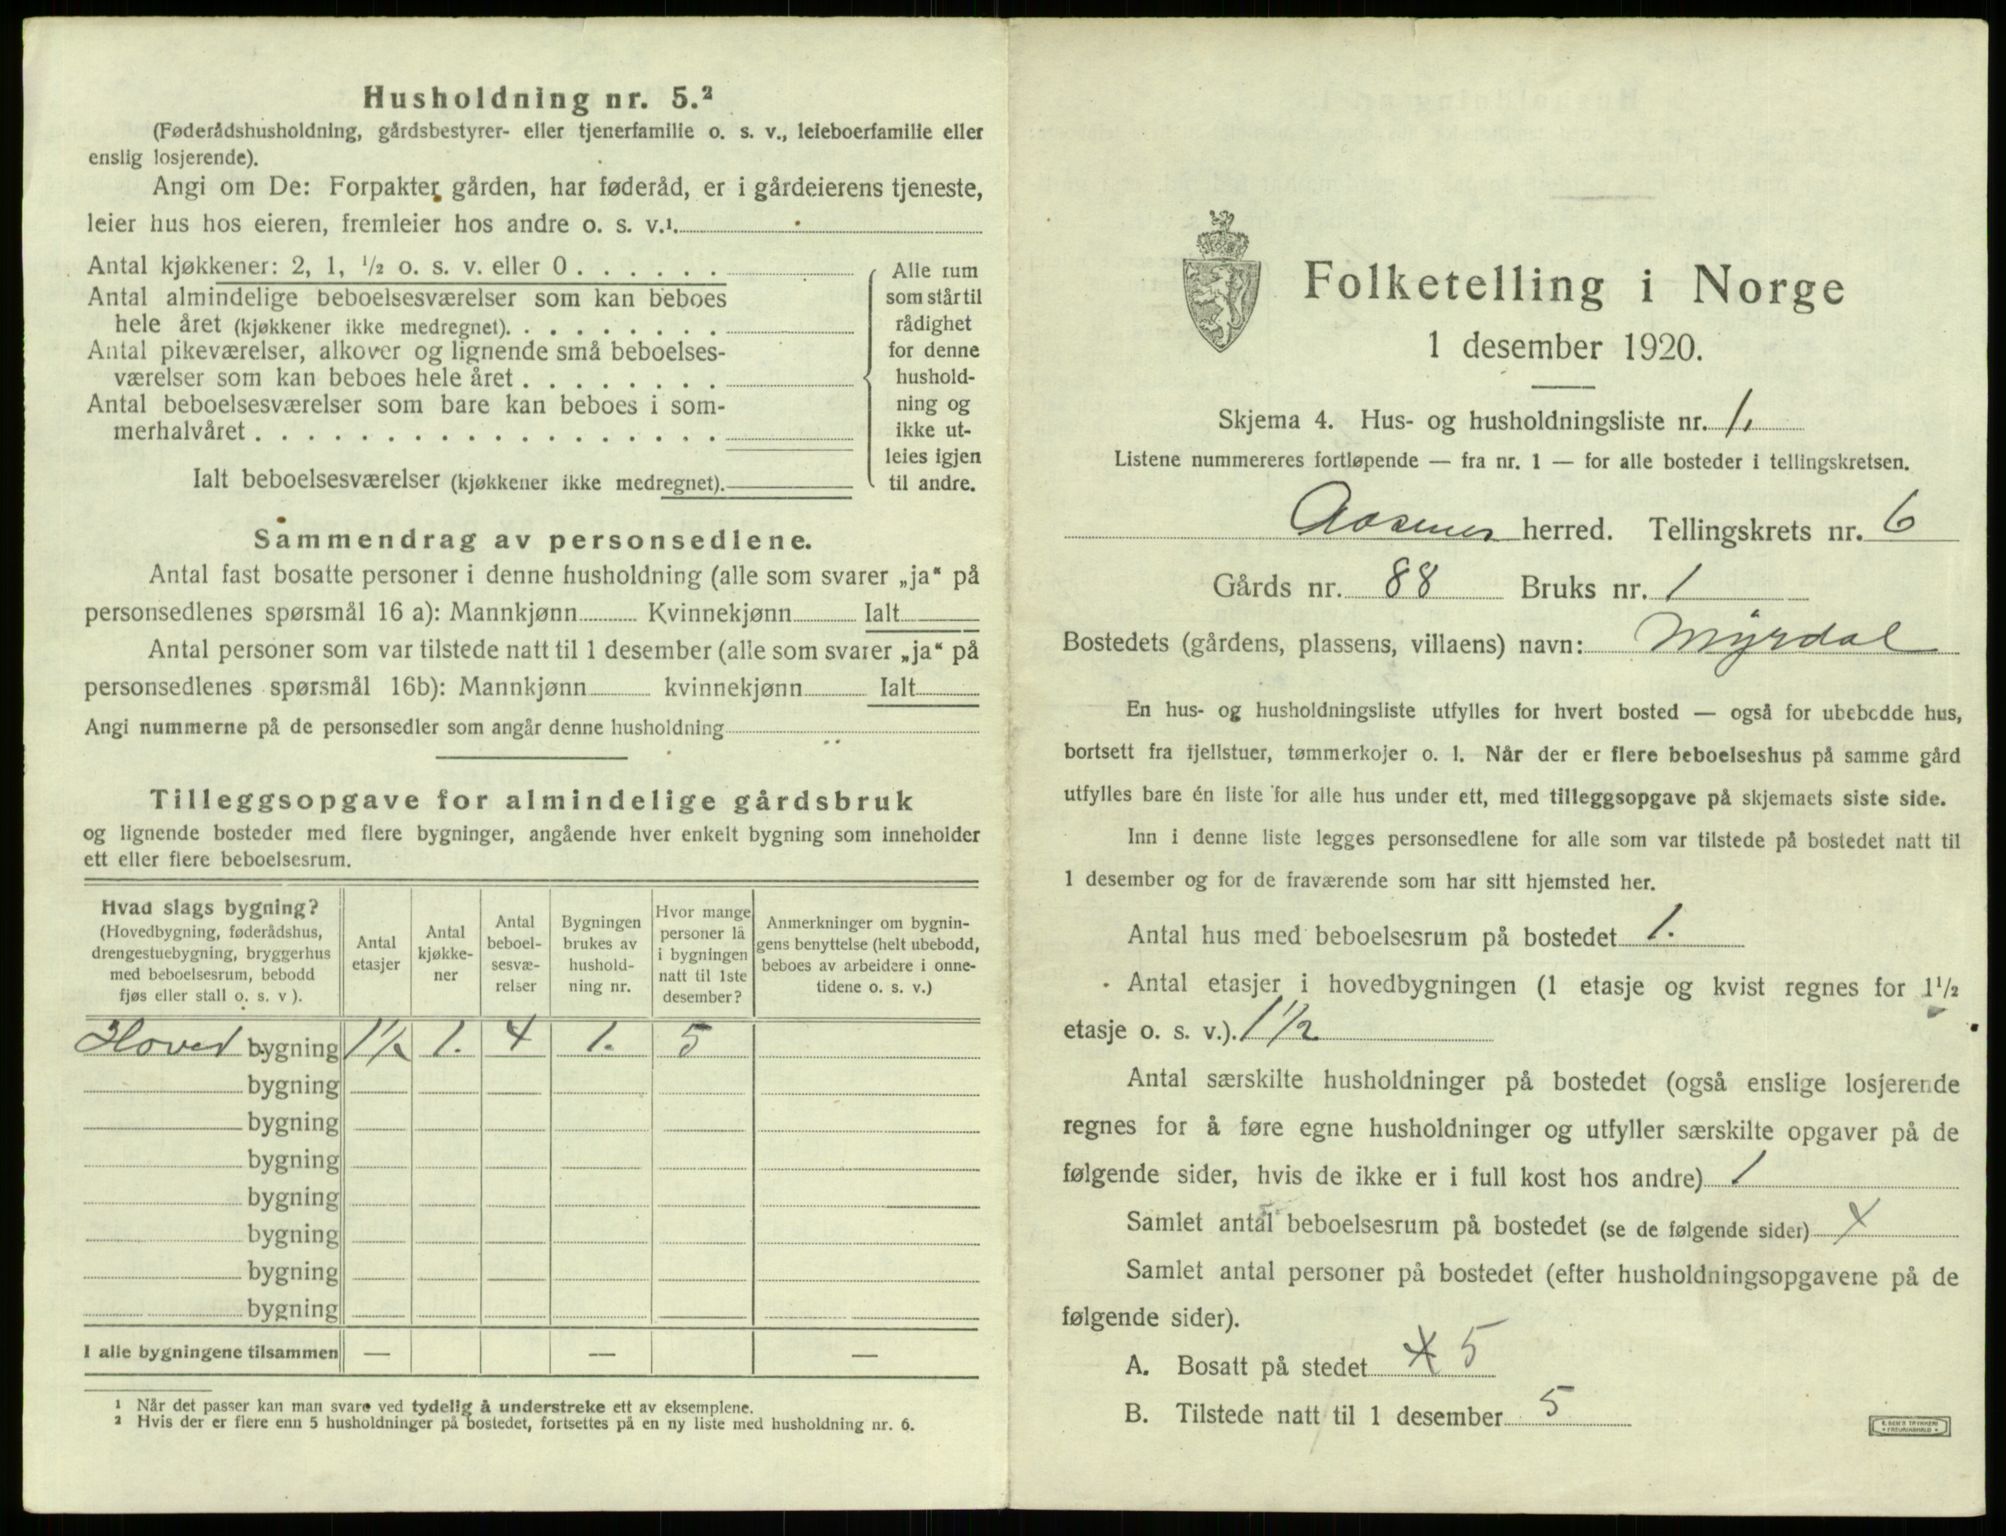 Husholdning nr. 5.²
(Føderådshusholdning, gårdsbestyrer- eller tjenerfamilie o. s. v., leieboerfamilie eller
enslig losjerende).
Angi om De: Forpakter gården, har føderåd, er i gårdeierens tjeneste,
leier hus hos eieren, fremleier hos andre o. s. v.¹.
Antal kjøkkener: 2, 1, ½ o. s. v. eller 0 . . . . . .
Antal almindelige beboelsesværelser som kan beboes
hele året (kjøkkener ikke medregnet). . . . . . . . .
Antal pikeværelser, alkover og lignende små beboelses-
værelser som kan beboes hele året . . . . . . . .
Antal beboelsesværelser som bare kan beboes i som-
merhalvåret . . . . . . . . . . . . . . . . . .
Ialt beboelsesværelser (kjøkkener ikke medregnet).
Alle rum
som står til
rådighet
for denne
hushold-
ning og
ikke ut-
leies igjen
til andre.
Sammendrag av personsedlene.
Antal fast bosatte personer i denne husholdning (alle som svarer „ja“ på
personsedlenes spørsmål 16 a): Mannkjønn Kvinnekjønn Ialt
Antal personer som var tilstede natt til 1 desember (alle som svarer „ja“ på
personsedlenes spørsmål 16b): Mannkjønn kvinnekjønn Ialt
Angi nummerne på de personsedler som angår denne husholdning
Tilleggsopgave for almindelige gårdsbruk
og lignende bosteder med flere bygninger, angående hver enkelt bygning som inneholder
ett eller flere beboelsesrum.
Hvad slags bygning?
(Hovedbygning, føderådshus,
drengestuebygning, bryggerhus
med beboelsesrum, bebodd
fjøs eller stall o. s. v ).
Antal
etasjer
Antal
kjøkke-
ner
Antal
beboel-
sesvæ-
relser
Bygningen
brukes av
hushold-
ning nr.
Hvor mange
personer lå
i bygningen
natt til 1ste
desember?
Anmerkninger om bygnin-
gens benyttelse (helt ubebodd,
beboes av arbeidere i onne-
tidene o. s. v.)
Hoved bygning 1½ 1. 4 1. 5
bygning
bygning
bygning
bygning
bygning
bygning
bygning
I alle bygningene tilsammen — — —
¹ Når det passer kan man svare ved tydelig å understreke ett av eksemplene.
² Hvis der er flere enn 5 husholdninger på bostedet, fortsettes på en ny liste med husholdning nr. 6.
Folketelling i Norge
1 desember 1920.
Skjema 4. Hus- og husholdningsliste nr. 1.
Listene nummereres fortløpende — fra nr. 1 — for alle bosteder i tellingskretsen.
Aasenes herred. Tellingskrets nr. 6
Gårds nr. 88 Bruks nr. 1
Bostedets (gårdens, plassens, villaens) navn: Myrdal
En hus- og husholdningsliste utfylles for hvert bosted — også for ubebodde hus,
bortsett fra fjellstuer, tømmerkojer o. l. Når der er flere beboelseshus på samme gård
utfylles bare én liste for alle hus under ett, med tilleggsopgave på skjemaets siste side.
Inn i denne liste legges personsedlene for alle som var tilstede på bostedet natt til
1 desember og for de fraværende som har sitt hjemsted her.
Antal hus med beboelsesrum på bostedet 1.
Antal etasjer i hovedbygningen (1 etasje og kvist regnes for 1½
etasje o. s. v.). 1½
Antal særskilte husholdninger på bostedet (også enslige losjerende
regnes for å føre egne husholdninger og utfyller særskilte opgaver på de
følgende sider, hvis de ikke er i full kost hos andre) 1
Samlet antal beboelsesrum på bostedet (se de følgende sider) 4
Samlet antal personer på bostedet (efter husholdningsopgavene på de
følgende sider).
A. Bosatt på stedet 5
B. Tilstede natt til 1 desember 5